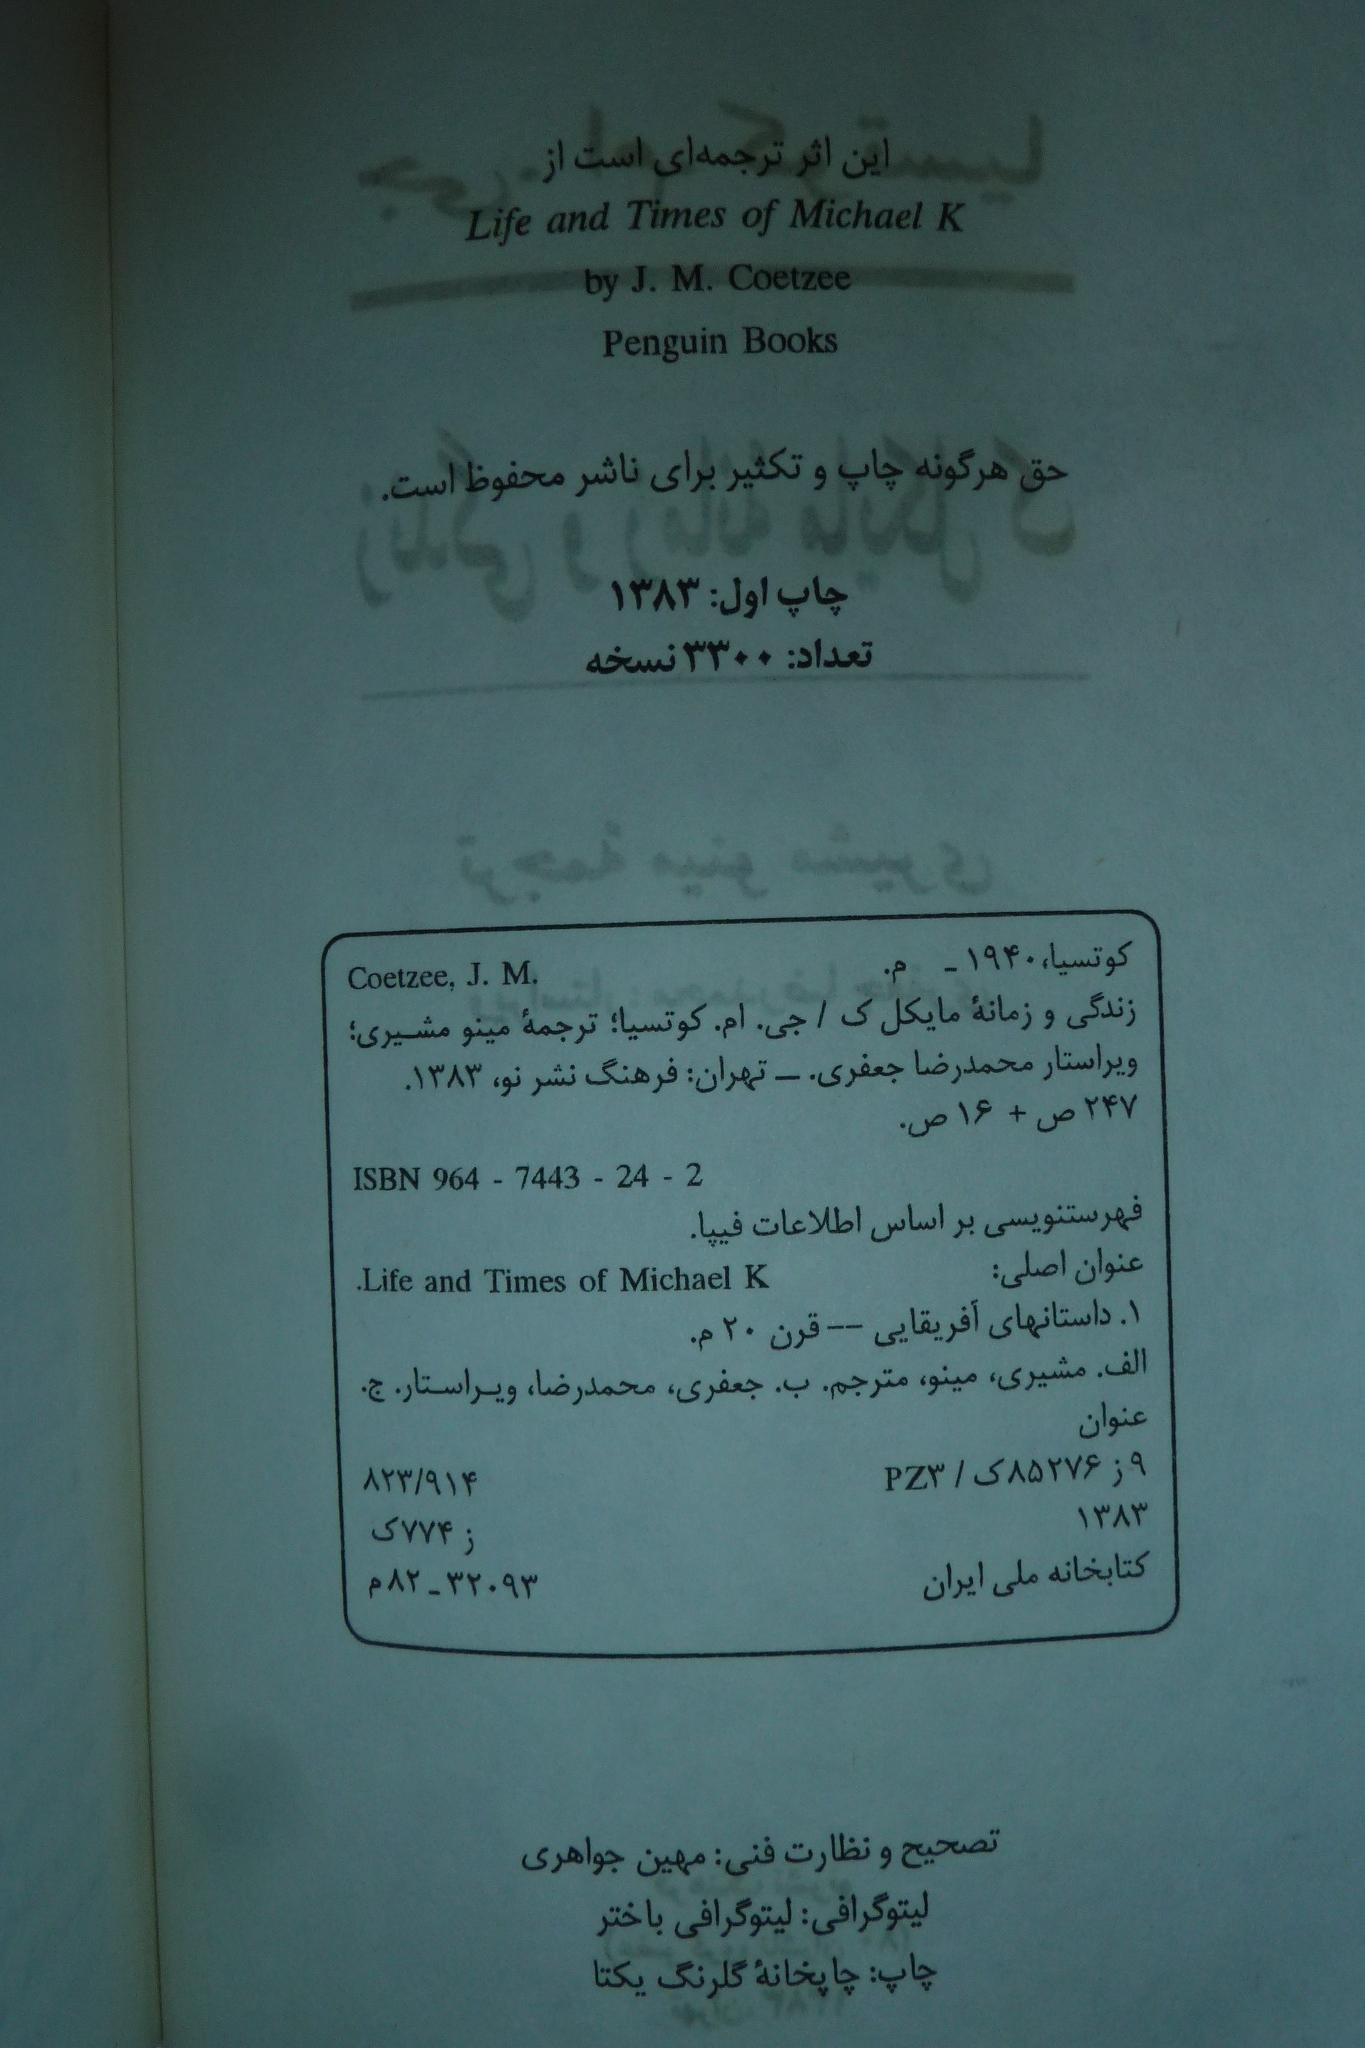 این اثر ترجمه‌ای است از
Life and Times of Michael K
by J. M. Coetzee
Penguin Books
حق هرگونه چاپ و تکثیر برای ناشر محفوظ است.
چاپ اول: ۱۳۸۳
تعداد: ۳۳۰۰ نسخه
کوتسیا، ۱۹۴۰ ـ م. Coetzee, J. M.
زندگی و زمانهٔ مایکل ک / جی. ام. کوتسیا؛ ترجمهٔ مینو مشیری؛
ویراستار محمدرضا جعفری. ــ تهران: فرهنگ نشر نو، ۱۳۸۳.
۲۴۷ ص + ۱۶ ص.
ISBN 964 - 7443 - 24 - 2
فهرستنویسی بر اساس اطلاعات فیپا.
عنوان اصلی: Life and Times of Michael K.
۱. داستانهای آفریقایی -- قرن ۲۰ م.
الف. مشیری، مینو، مترجم. ب. جعفری، محمدرضا، ویراستار. ج.
عنوان
۹ ز ۸۵۲۷۶ک / PZ۳ ۸۲۳/۹۱۴
۱۳۸۳ ز ۷۷۴ک
کتابخانه ملی ایران ۳۲۰۹۳ـ۸۲م
تصحیح و نظارت فنی: مهین جواهری
لیتوگرافی: لیتوگرافی باختر
چاپ: چاپخانهٔ گلرنگ یکتا